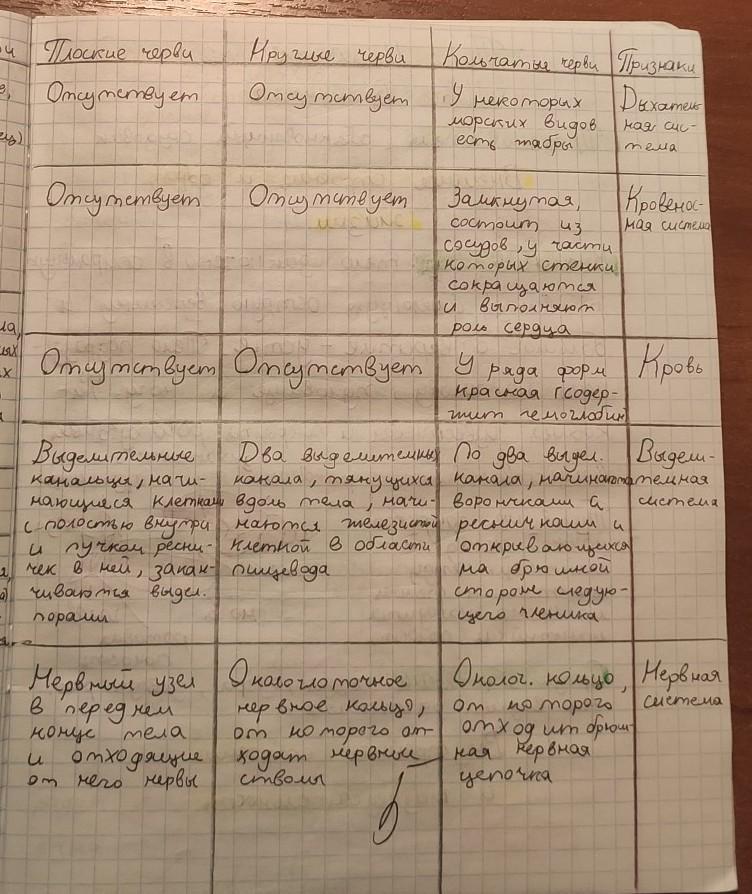 Плоские черви
Круглые черви
Кольчатые черви
Признаки
Отсутствует
Отсутствует
У некоторых
морских видов
есть жабры
Дыхатель
ная сис-
тема
Отсутствует
Отсутствует
Замкнутая,
состоит из
сосудов, у части
которых стенки
сокращаются
и выполняют
роль сердца
Кровенос-
ная система
Отсутствует
Отсутствует
У ряда форм
красная (содер-
жит гемоглобин
Кровь
Выделительные
канальцы, начи-
нающиеся клетками
с полостью внутри
и пучком ресни-
чек в ней, закан-
чиваются выдел.
порами
Два выделительных
канала, тянущихся
вдоль тела, начи-
наются железистой
клеткой в области
пищевода
По два выдел.
канала, начинаются
воронками с
ресничками и
открывающихся
на брюшной
стороне следую-
щего членика
Выдели-
тельная
система
Нервный узел
в переднем
конце тела
и отходящие
от него нервы
Окологлоточное
нервное кольцо,
от которого от-
ходят нервные
стволы
Околог. кольцо,
от которого
отходит брюш-
ная нервная
цепочка
Нервная
система